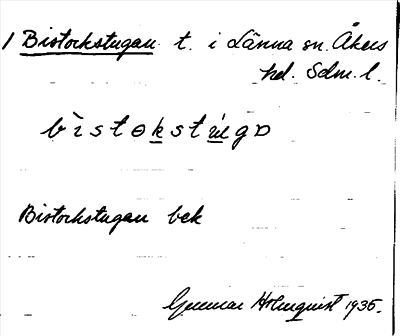 1 Bistockstugan t. i Länna sn. Åkers
hd. Sdm. l.
bìstoksttúgɒ
Bistockstugan bek
Gunnar Holmquist 1935.